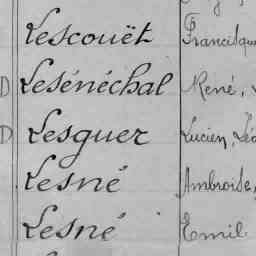 Lescouët Francisque
D Lesénéchal René,
D Lesguer Lucien, Léo
Lesné Ambroise,
Lesné Emil